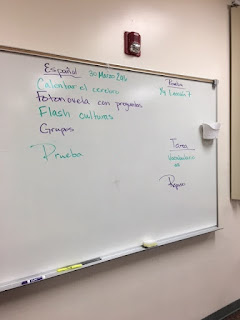 Español 30 Marzo 2016
Calentar el cerebro
Fotonovela con preguntas
Flash culturas
Grupos
Prueba
Prueba
Lección 7
Tarea
Vocabulario
Repaso